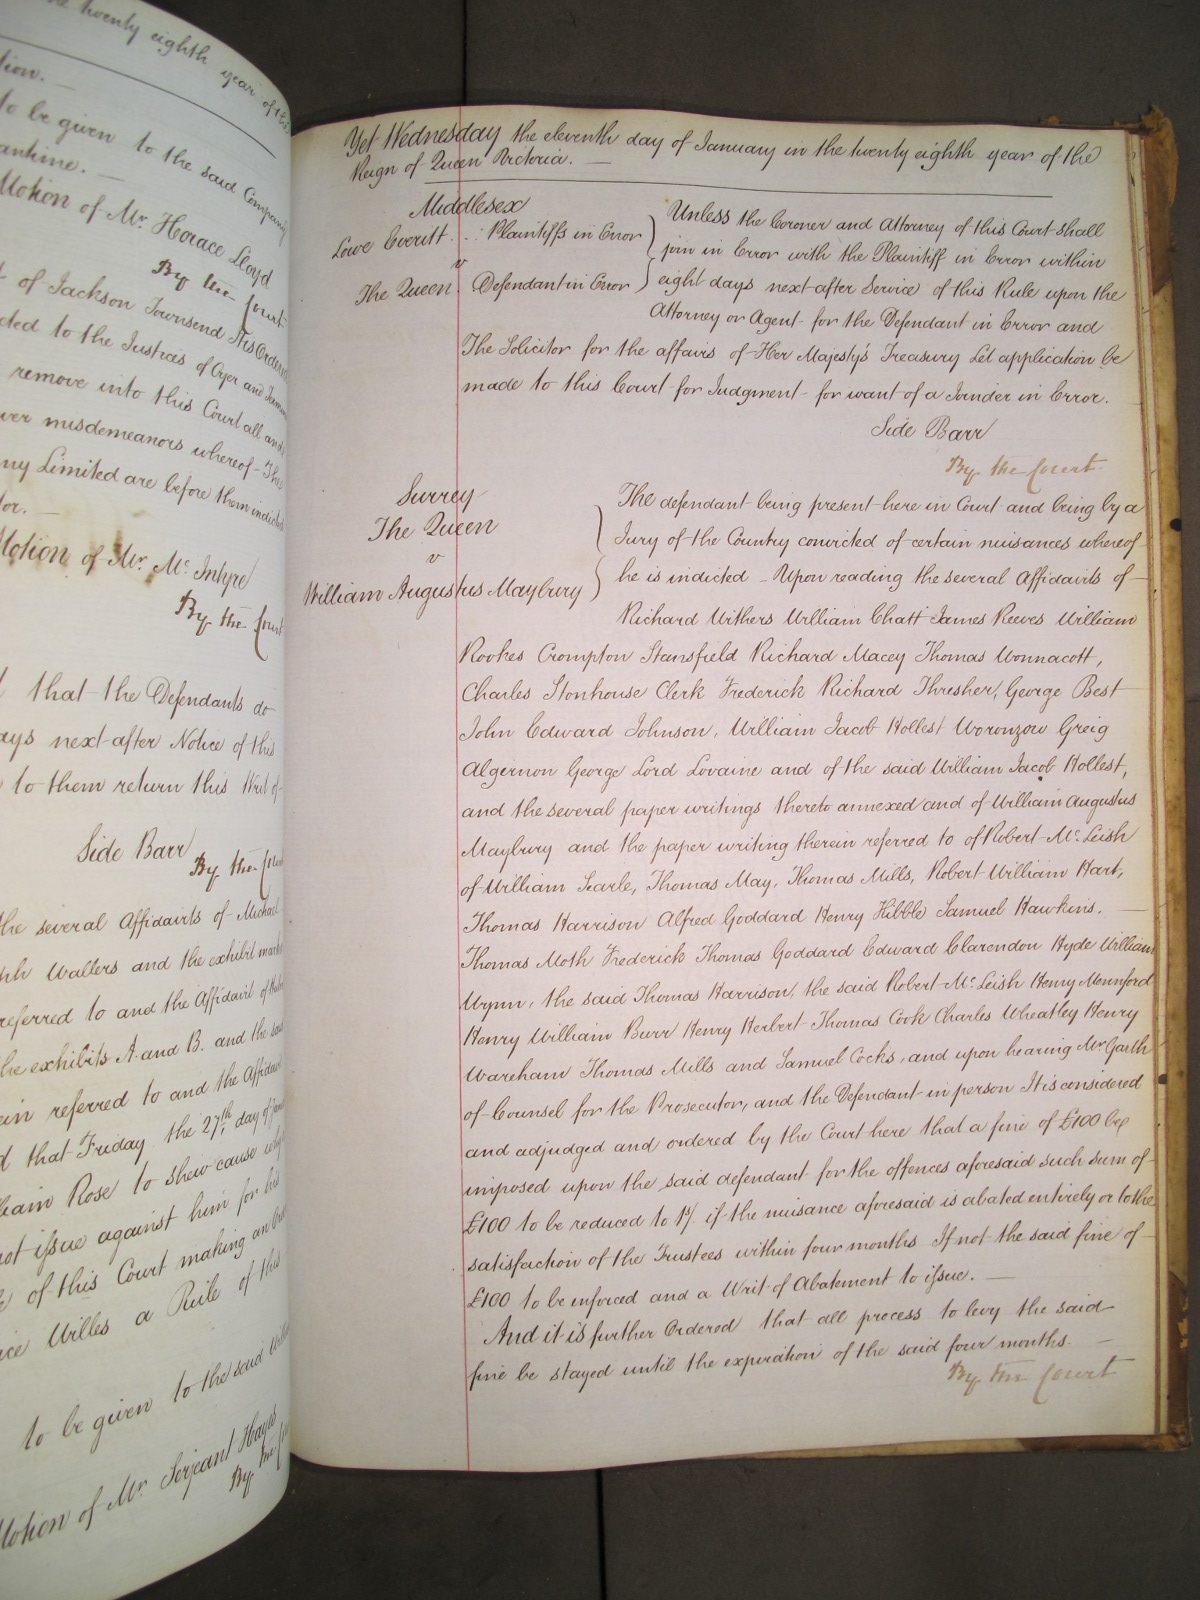 the twenty eighth year of this
tion.
to be given to the said Company
Motion of Mr. Horace Lloyd
By the Court
of Jackson Townsend It is Ordered
cted to the Justices of Oyer and
remove into this Court all and
misdemeanors whereof The
ny Limited are before them indicted
tor.
Motion of Mr. McIntyre
By the Court
that the Defendants do
ays next after Notice of this
to them return this Writ of
Side Barr
By the Court
the several Affidavits of Michael
Wallers and the exhibit marked
referred to and the Affidavit of
he exhibits A. and B. and the said
ein referred to and the Affidavit
that Friday the 27th day of
liam Rose to shew cause why
not issue against him for his
of this Court making an Order
ice Willes a Rule of this
to be given to the said
Motion of Mr. Serjeant Hayes
By the
Yet Wednesday the eleventh day of January in the twenty eighth year of the
Reign of Queen Victoria.
Middlesex
Lowe Everitt Plaintiffs in Error
v
The Queen Defendant in Error
Unless the Coroner and Attorney of this Court shall
join in Error with the Plaintiff in Error within
eight days next after Service of this Rule upon the
Attorney or Agent for the Defendant in Error and
The Solicitor for the affairs of Her Majesty's Treasury Let application be
made to this Court for Judgment for want of a Joinder in Error.
Side Barr
By the Court
Surrey
The Queen
v
William Augustus Maybury
The defendant being present here in Court and being by a
Jury of the Country convicted of certain nuisances whereof
he is indicted Upon reading the several Affidavits of
Richard Withers William Chatt James Reeves William
Rookes Crompton Stansfield Richard Macey Thomas Wonnacott,
Charles Stonhouse Clerk Frederick Richard Thresher, George Best
John Edward Johnson, William Jacob Hollest Woronzow Greig
Algernon George Lord Lovaine and of the said William Jacob Hollest,
and the several paper writings thereto annexed and of William Augustus
Maybury and the paper writing therein referred to of Robert McLeish
of William Searle, Thomas May, Thomas Mills, Robert William Hart,
Thomas Harrison Alfred Goddard Henry Hibble Samuel Hawkins.
Thomas Moth Frederick Thomas Goddard Edward Clarendon Hyde William
Wynn, the said Thomas Harrison, the said Robert McLeish Henry Mumford
Henry William Burr Henry Herbert Thomas Cook Charles Wheatley Henry
Wareham Thomas Mills and Samuel Cocks, and upon hearing Mr Garth
of Counsel for the Prosecutor, and the Defendant in person It is considered
and adjudged and ordered by the Court here that a fine of £100 be
imposed upon the said defendant for the offences aforesaid such sum of
£100 to be reduced to 1s/ if the nuisance aforesaid is abated entirely or to the
satisfaction of the Trustees within four months If not the said fine of
£100 to be enforced and a Writ of Abatement to issue.
And it is further Ordered that all process to levy the said
fine be stayed until the expiration of the said four months.
By the Court